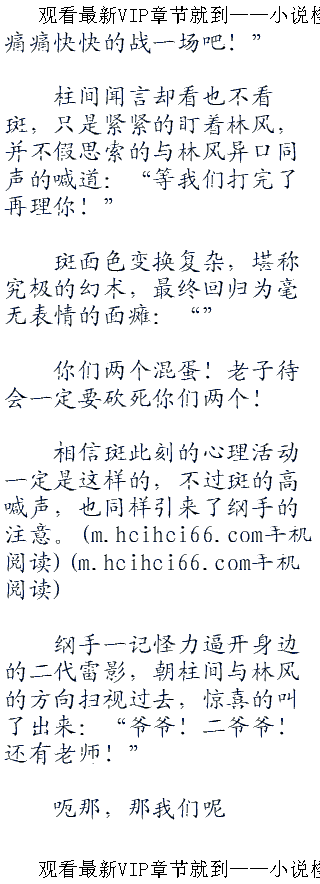 观看最新VIP章节就到——小说
痛痛快快的战一场吧！”
柱间闻言却看也不看
斑，只是紧紧的盯着林风，
并不假思索的与林风异口同
声的喊道：“等我们打完了
再理你！”
斑面色变换复杂，堪称
究极的幻术，最终回归为毫
无表情的面瘫：“”
你们两个混蛋！老子待
会一定要砍死你们两个！
相信斑此刻的心理活动
一定是这样的，不过斑的高
喊声，也同样引来了纲手的
注意。(m.hcihci66.com手机
阅读)(m.hcihci66.com手机
阅读)
纲手一记怪力逼开身边
的二代雷影，朝柱间与林风
的方向扫视过去，惊喜的叫
了出来：“爷爷！二爷爷！
还有老师！”
呃那，那我们呢
观看最新VIP章节就到——小说